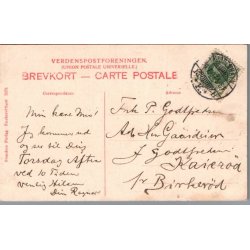 VERDENSPOSTFORENINGEN
(UNION POSTALE UNIVERSELLE)
BREVKORT — CARTE POSTALE
Correspondance
Adresse
Min kære Mus!
Jeg kommer ud
og er til Dig
Torsdag Aften
ved 10 Tiden
venlig Hilsen
Din
Frk P. Godtfredsen
Adr. Gartner
J. Godtfredsen
Kajerød
pr Birkerød